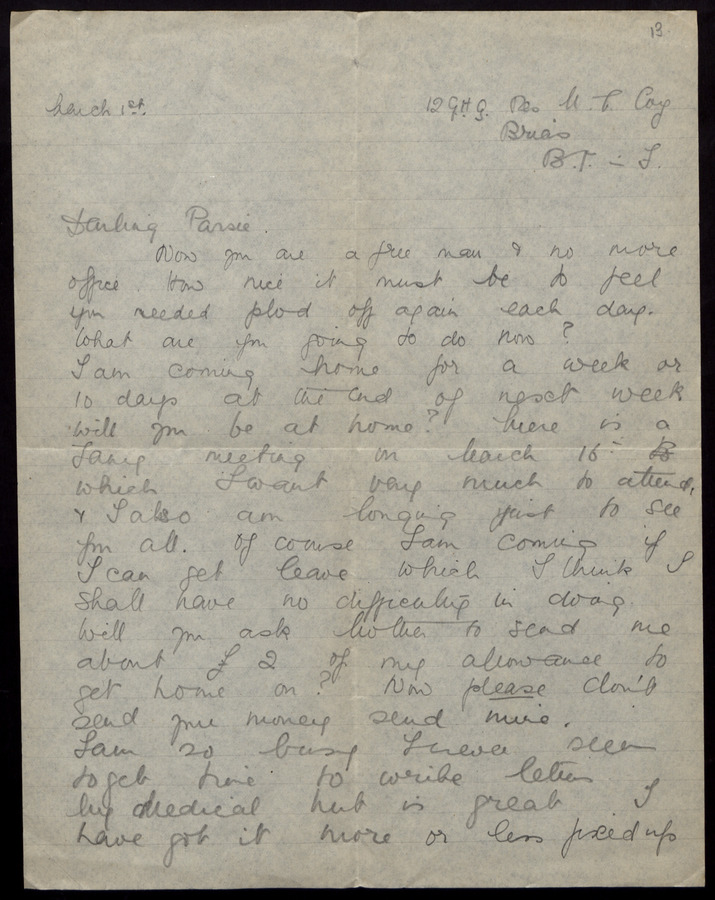 13.
March 1st.
12 G.H.Q. Res M. T. Coy
B.T. - I.
Darling Parsie.
Now you are a free man & no more
office. How nice it must be to feel
you needed plod off again each day.
What are you going to do now?
I am coming home for a week or
10 days at the end of next week
will you be at home? There is a
Fany meeting on March 16th
which I want very much to attend,
& I also am longing just to see
you all. Of course I am coming if
I can get leave which I think I
shall have no difficulty in doing.
Will you ask Mother to send me
about £2 of my allowance to
get home on? Now please don't
send your money send mine.
I am so busy I never seem
to get time to write letters
My Medical hut is great I
have got it more or less fixed up